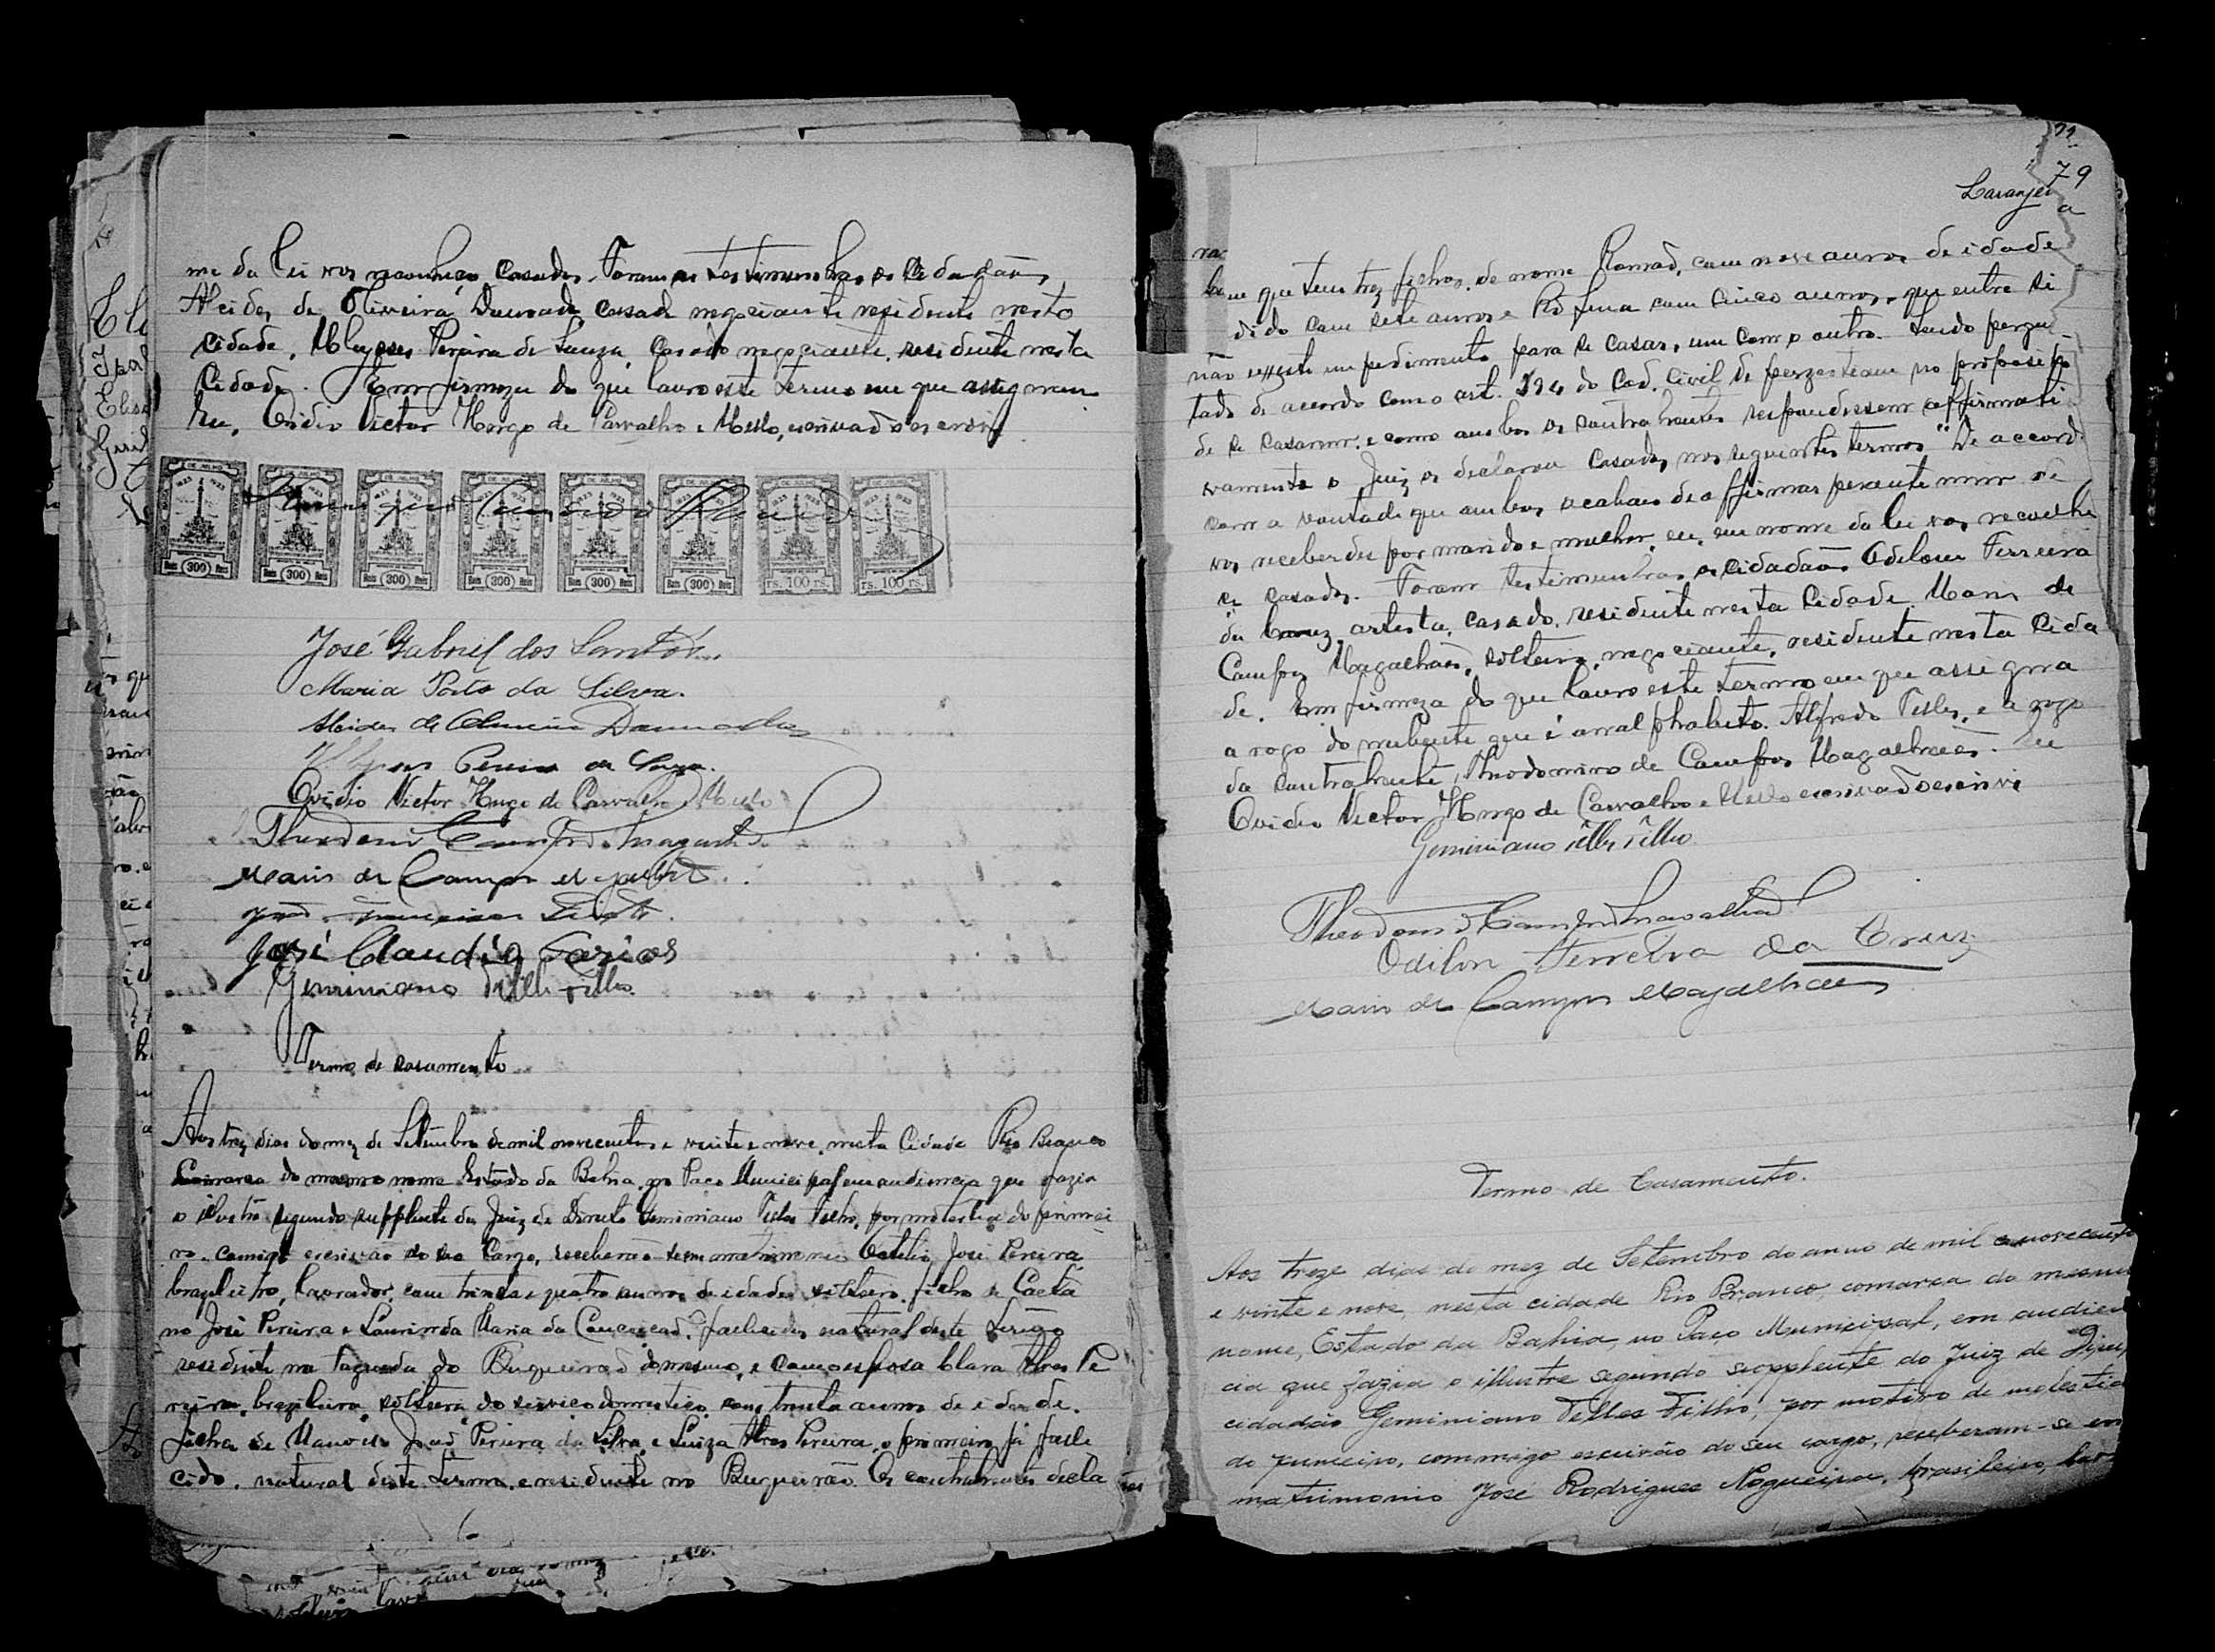 me da lei vos reconheço casados. Foram as testimunhas os cidadãos
Alcides de Oliveira Dourado, casado negociante residente nesta
cidade, Ulysses Pereira de Souza, casado negociante, residente nesta
Cidade. Em firmeza do que lavro este termo em que assignam
Eu, Ovidio Victor Hugo de Carvalho e Mello, escrivão o escrevi
2 DE JULHO
1823 1923
Reis 300 Reis
Reis 300 Reis
Reis 300 Reis
Reis 300 Reis
Reis 300 Reis
Reis 300 Reis
rs. 100 rs.
rs. 100 rs.
José Gabriel dos Santos
Maria Porto da Silva.
Alcides de Oliveira Dourado
Ulysses Pereira de Souza.
Ovidio Victor Hugo de Carvalho e Mello
Campos Magalhães
de Campos Magalhães
José Claudio Farias
Geminiano Telles Filho.
Termo de casamento
Aos trez dias do mez de Setembro de mil novecentos e vinte e nove, nesta Cidade Rio Branco
Comarca do mesmo nome Estado da Bahia, no Paço Municipal em audiencia que fazia
o illustre segundo supplente do Juiz de Direito Geminiano Telles Filho, por molestia do primei
ro, comigo escrivão do seu Cargo, receberão se em matrimonio José Pereira,
brazileiro, lavrador, com trinta e quatro annos de idade, solteiro, filho de Caeta
no José Pereira e Laurinda Maria da Conceição, fallecidos natural deste termo
residente na fazenda do Buqueirão do mesmo, e como esposa Clara Alves Pe
reira, brazileira, solteira do serviço domestico, com trinta annos de idade.
filha de Manoel João Pereira da Silva e Luiza Alves Pereira, o primeiro já falle
cido, natural deste termo, e residente no Buqueirão. Os contrahentes decla
79
Laranjeira
ra
que tem trez filhos, de nome Romão, com nove annos de idade
dido com sete annos e com cinco annos, que entre si
não existe impedimento para se casar, um com o outro. Sendo pergun
tado de accordo com o art. 194 do Cod. Civil se perzisteam no proposito
de se casarem, e como ambos os contrahentes respondessem affirmati
vamente o Juiz os declarou casados nos seguintes termos "De accordo
com a vontade que ambos acabaes de affirmar perante mim de
vos receberdes por marido e mulher, eu, em nome da lei vos reconhe
ço casados. Foram testimunhas os cidadãos Odilon Ferreira
da Cruz, artista, casado, residente nesta Cidade, de
Campos Magalhães, solteiro, negociante, residente nesta Cida
de. Em firmeza do que lavro este termo em que assigna
a rogo do nubente que é analphabeto. Alfredo Telles, e a rogo
da contrahente, Theodomiro de Campos Magalhães. Eu
Ovidio Victor Hugo de Carvalho e Mello escrivão o escrevi
Geminiano Telles Filho
Campos Magalhães
Odilon Ferreira da Cruz
de Campos Magalhães
Termo de Casamento.
Aos treze dias do mez de Setembro do anno de mil e novecentos
e vinte e nove, nesta cidade Rio Branco, comarca do mesmo
nome, Estado da Bahia, no Paço Municipal, em audien
cia que fazia o illustre segundo supplente do Juiz de Direi
cidadão Geminiano Telles Filho, por motivo de molestia
do primeiro, commigo escrivão do seu cargo, receberam-se em
matrimonio José Rodrigues Nogueira, brasileiro, lav